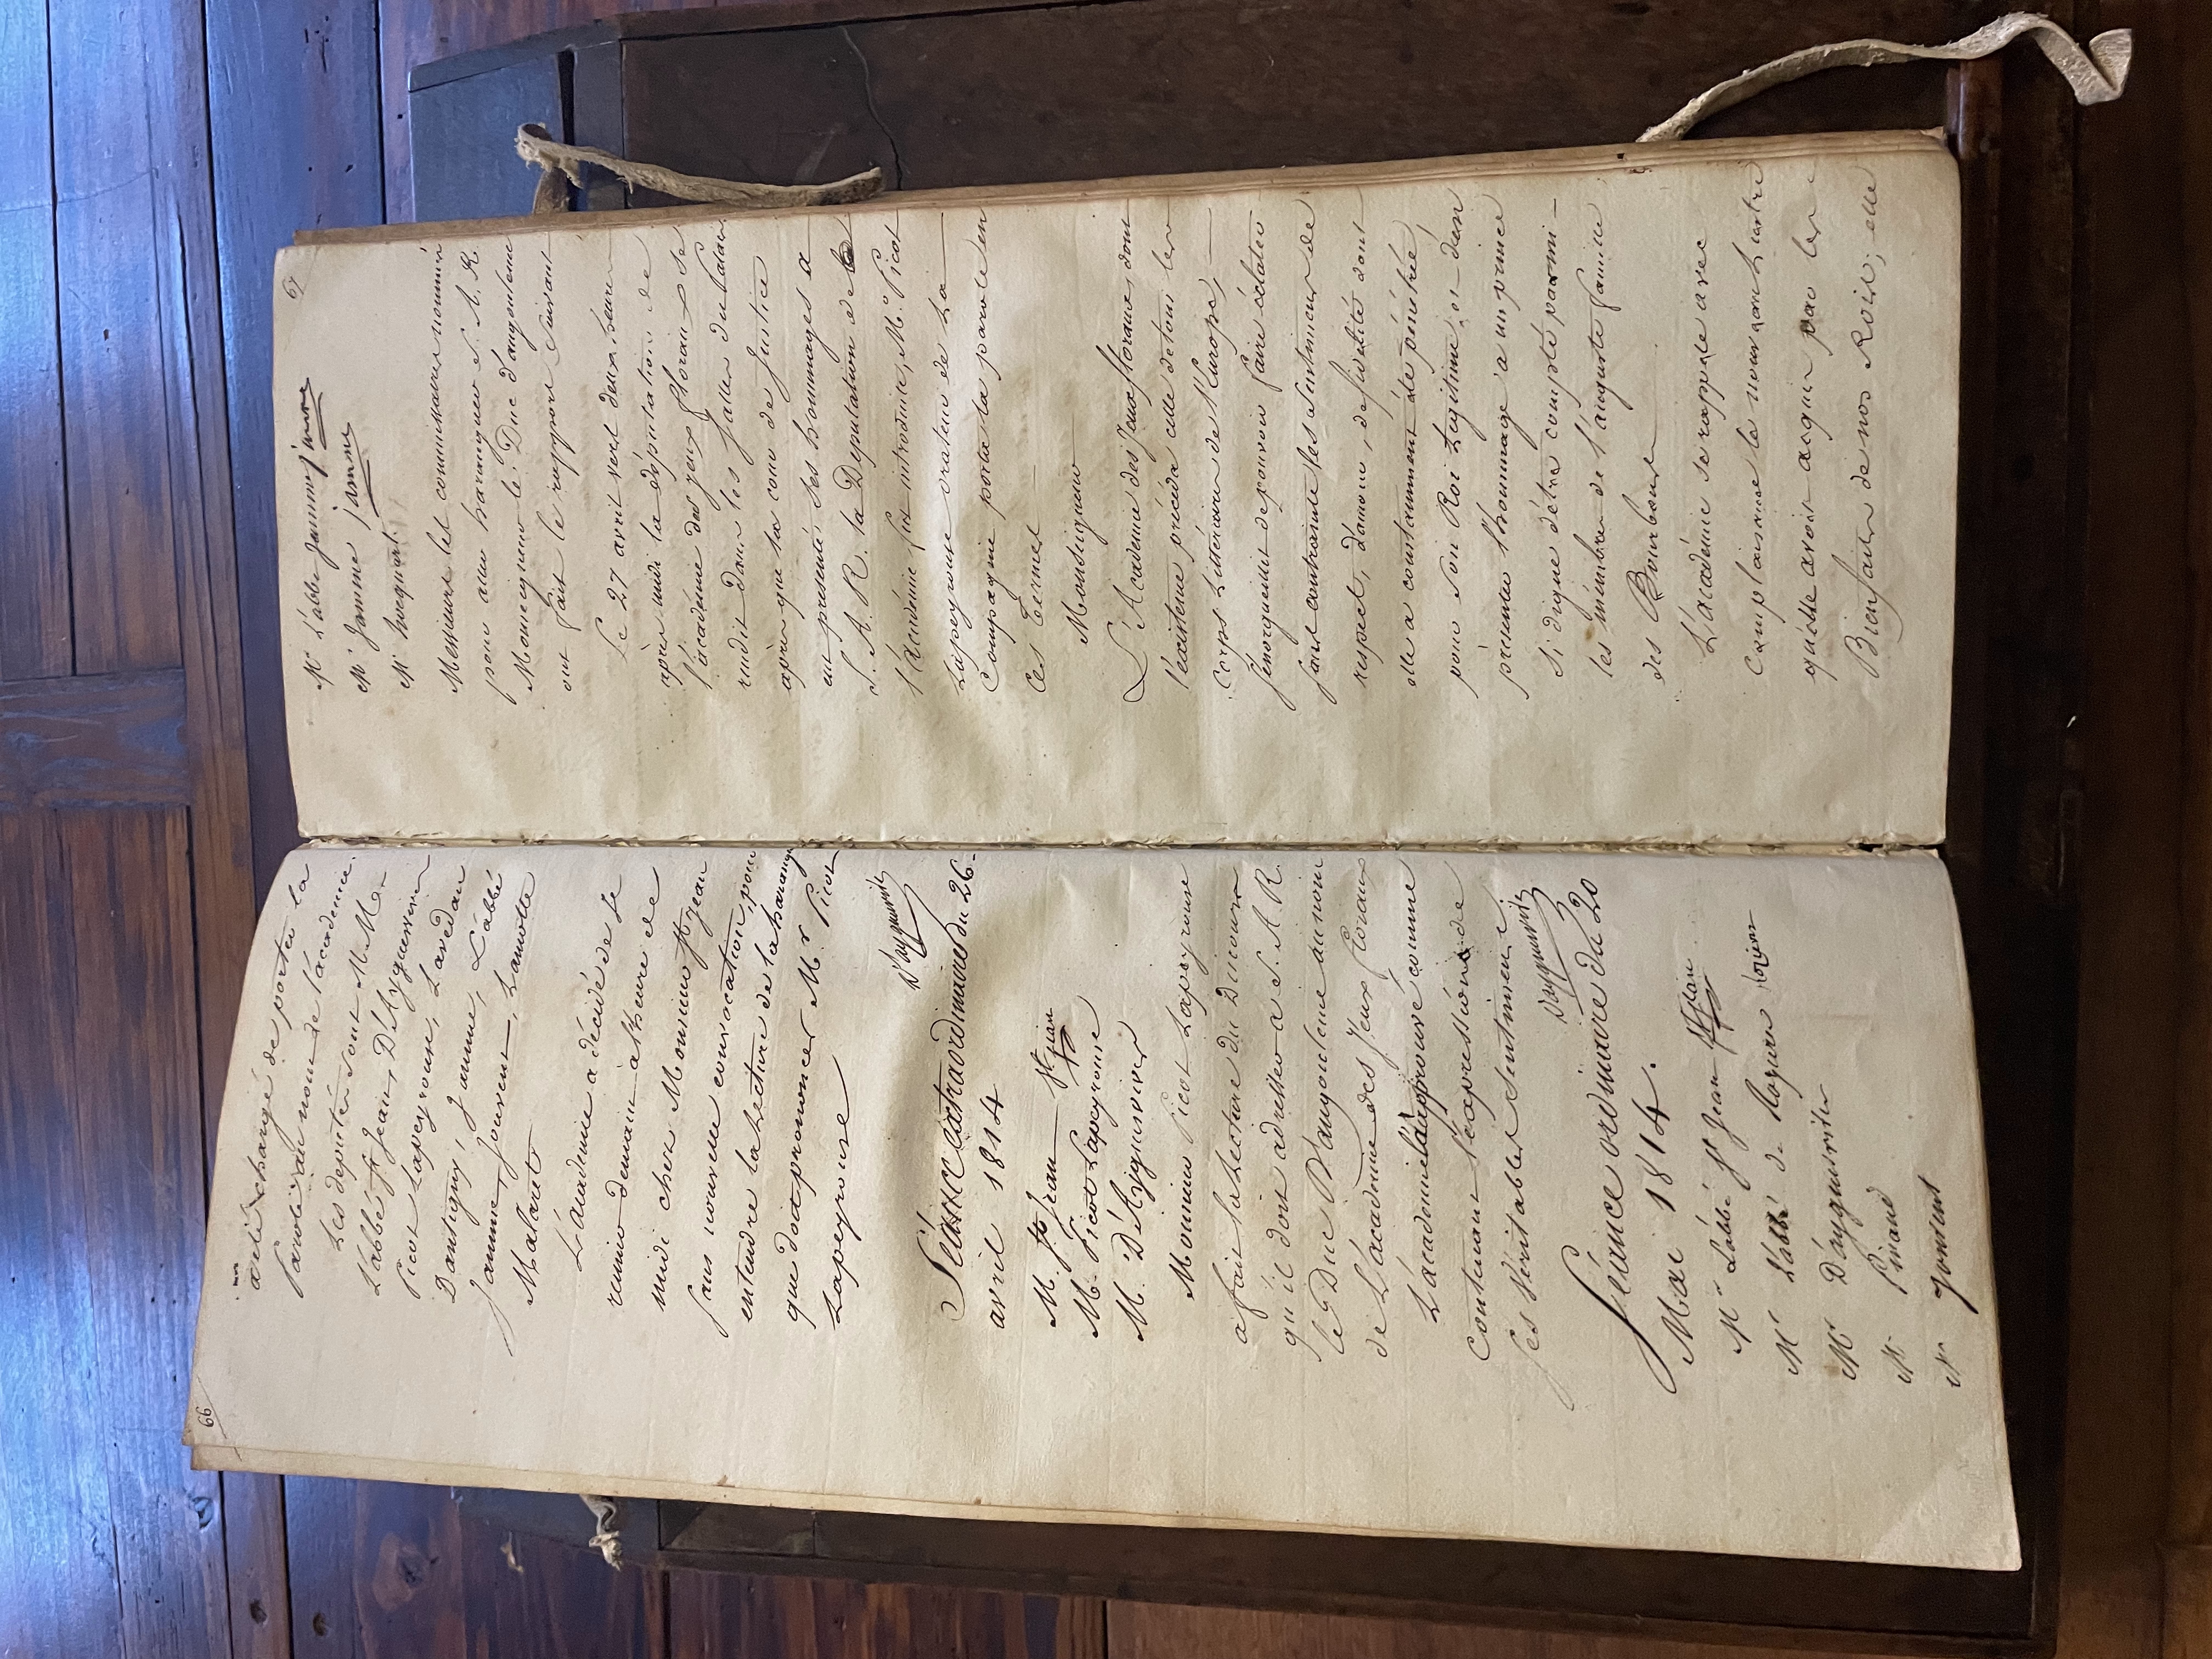 66
a été chargé de porter la
parole au nom de l'académie.
Les députés sont M.M.
L'abbé St Jean, D'Ayguesvives
Picot Lapeyrouse, Lavedan
Dantigny, Jamme, L'abbé
Jamme, Jouvent, Lamotte
Malaret.
L'académie a décidé de se
reunir demain à l'heure de
midi chez Monsieur St Jean
sans nouvelle convocation, pour
entendre la lecture de la harangue
que doit prononcer Mr Picot
Lapeyrouse
D'ayguesvives
Séance Extraordinaire du 26
avril 1814
M. St Jean St jean
M. Picot Lapeyrouse
M. D'Ayguesvives
Monsieur Picot Lapeyrouse
a fait la Lecture du Discours
qu'il doit adresser a S. A. R.
le Duc D'angouleme au nom
de L'académie des Jeux floraux
L'académie l'a approuvé comme
contenant l'expression de
ses véritables sentimens.
D'ayguesvives
Séance ordinaire du 20
Mai 1814.
Mr L'abbé St Jean St jean
Mr L'abbé de Rozieres rozieres
Mr D'ayguesvives
Mr Pinaud
Mr Jouvent
67
Mr L'abbé Jamme jamme
Mr Jamme jamme
Mr
Messieurs les commissaires nommés
pour aller haranguer S. A. R.
Monseigneur le Duc d'angouleme
ont fait le rapport suivant
Le 27 avril vers deux heures
après midi la députation de
l'académie des jeux floraux se
rendit dans les salles du palais
après que la cour de justice
eut presenté ses hommages a
S. A. R. la Deputation de
l'Académie fut introduite, Mr Picot
Lapeyrouse orateur de la
Compagnie porta la parole en
ces termes
Monseigneur
L'Académie des Jeux floraux, dont
l'existence précéda celle de tous les
corps Littéraires de l'Europe,
s'enorgueillit de pouvoir faire éclater
sans contrainte les sentimens de
respect, d'amour, de fidélité dont
elle a constamment été pénétrée
pour son Roi Legitime, et d'en
présenter l'hommage à un prince
si digne d'être compté parmi
les membres de l'auguste famille
des Bourbons
L'académie se rappele avec
complaisance le nouveau Lustre
qu'elle avoit acquis par les
Bienfaits de nos Rois; elle